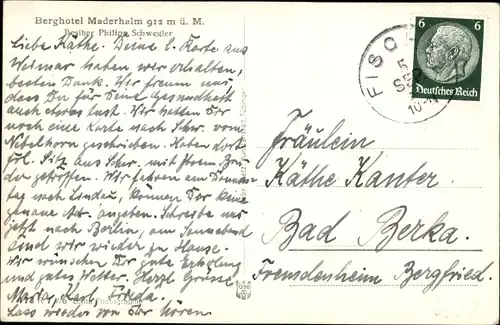 Berghotel Maderhalm 912 m ü. M.
Besitzer Philipp Schwegler
Liebe Käthe. Deine l. Karte aus
Weimar haben wir erhalten,
besten Dank. Wir freuen uns
dass Du für Deine Gesundheit
auch etwas tust. Wir hatten Dir
noch eine Karte nach Schw. vom
Nebelhorn geschrieben. Haben dort
Frl. Sitz aus Schw. mit Ihrem Bru-
der getroffen. Wir fahren am Donners-
tag nach Lindau, können Dir keine
genaue Adr. angeben. Schreibe uns
jetzt nach Berlin, am Sonnabend
sind wir wieder zu Hause.
Wir wünschen Dir gute Erholung
und gutes Wetter. Herzl. Grüsse
Maria, Karl, Frieda.
Lass wieder von Dir hören
FISCH
5
10-11
6
Deutsches Reich
Fräulein
Käthe Kanter
Bad Berka.
Fremdenheim Bergfried.